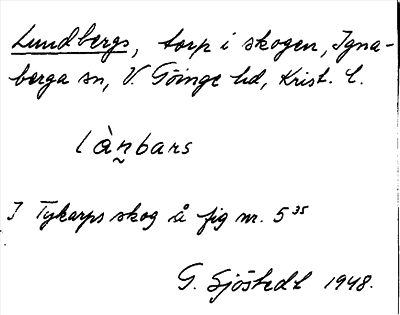 Lundbergs, torp i skogen, Igna-
berga sn, V. Göinge hd, Krist. l.
làn̰bars
I Tykarps skog å fig nr. 5³⁵
G. Sjöstedt 1948.